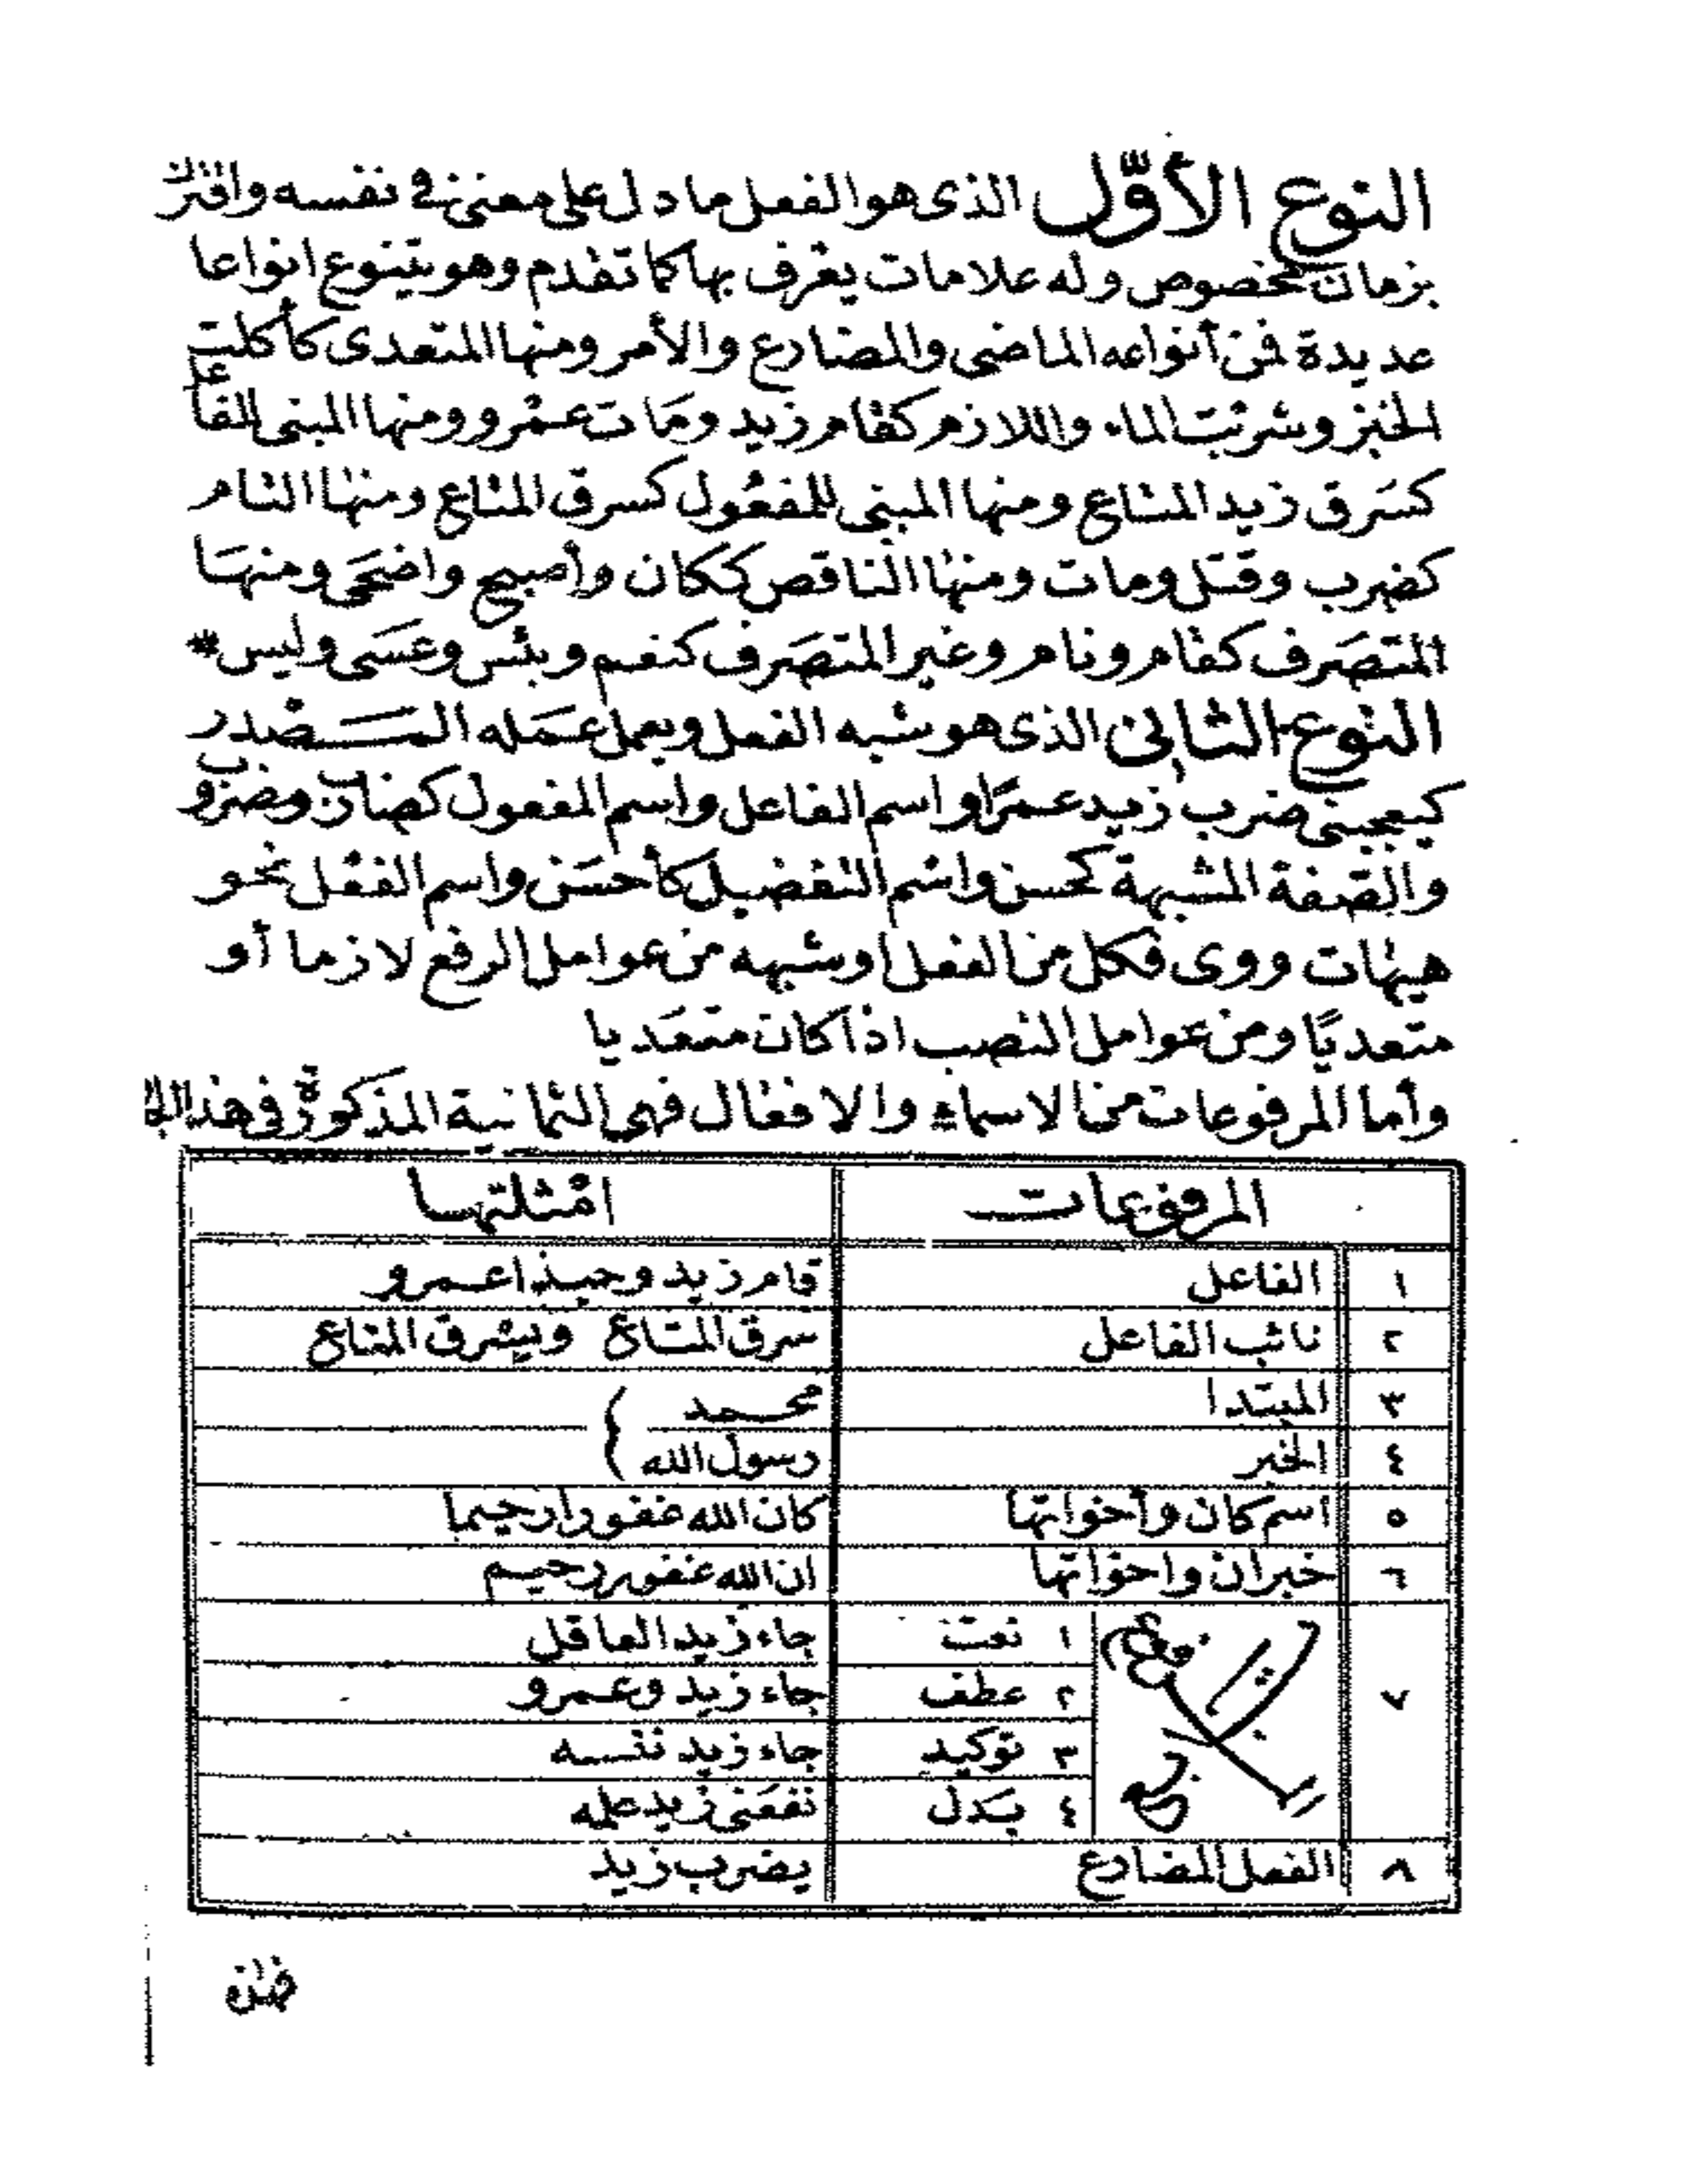 النوع الأوّل الذى هو الفعل ما دل على معنى فى نفسه واقترن
بزمان مخصوص وله علامات يعرف بها كما تقدم وهو يتنوع انواعا
عديدة فمن أنواعه الماضى والمضارع والأمر ومنها المتعدى كأكلت
الخبز وشربت الماء واللازم كقام زيد ومَات عمْرو ومنها المبنى للفاعل
كسَرق زيد المتاع ومنها المبنى للمفعُول كسرق المتاع ومنها التام
كضرب وقتل ومات ومنها الناقص ككان وأصبح واضحَى ومنهَا
المتصَرف كقام ونام وغير المتصَرف كنعم وبئس وعسَى وليس *
النوع الثانى الذى هو شبه الفعل ويعمل عمَله المَصْدر
كيعجبنى ضرب زيد عمرًا واسم الفاعل واسم المفعول كضارب ومضروب
والصفة المشبهة كحسن واسْم التفضيل كأحسَن واسم الفعْل نحو
هيهات ووى فكل من الفعل اوشبهه من عوامل الرفع لازما أو
متعديًا ومن عوامل النصب اذا كان متعَديا
وأما المرفوعات من الاسماء والافعال فهى الثمانية المذكورة فى هذا
المرفوعات امثلتها
١ الفاعل قام زيد وحبذا عمرو
٢ نائب الفاعل سرق المتاع ويسرق المتاع
٣ المبتدا محمد
٤ الخبر رسول الله
٥ اسم كان وأخواتها كان الله غفورا رحيما
٦ خبر ان واخواتها ان الله غفور رحيم
٧ ١ نعت جاء زيد العاقل
٢ عطف جاء زيد وعمرو
٣ توكيد جاء زيد نفسه
٤ بَدل نفعَنى زيد علمه
٨ الفعل المضارع يضرب زيد